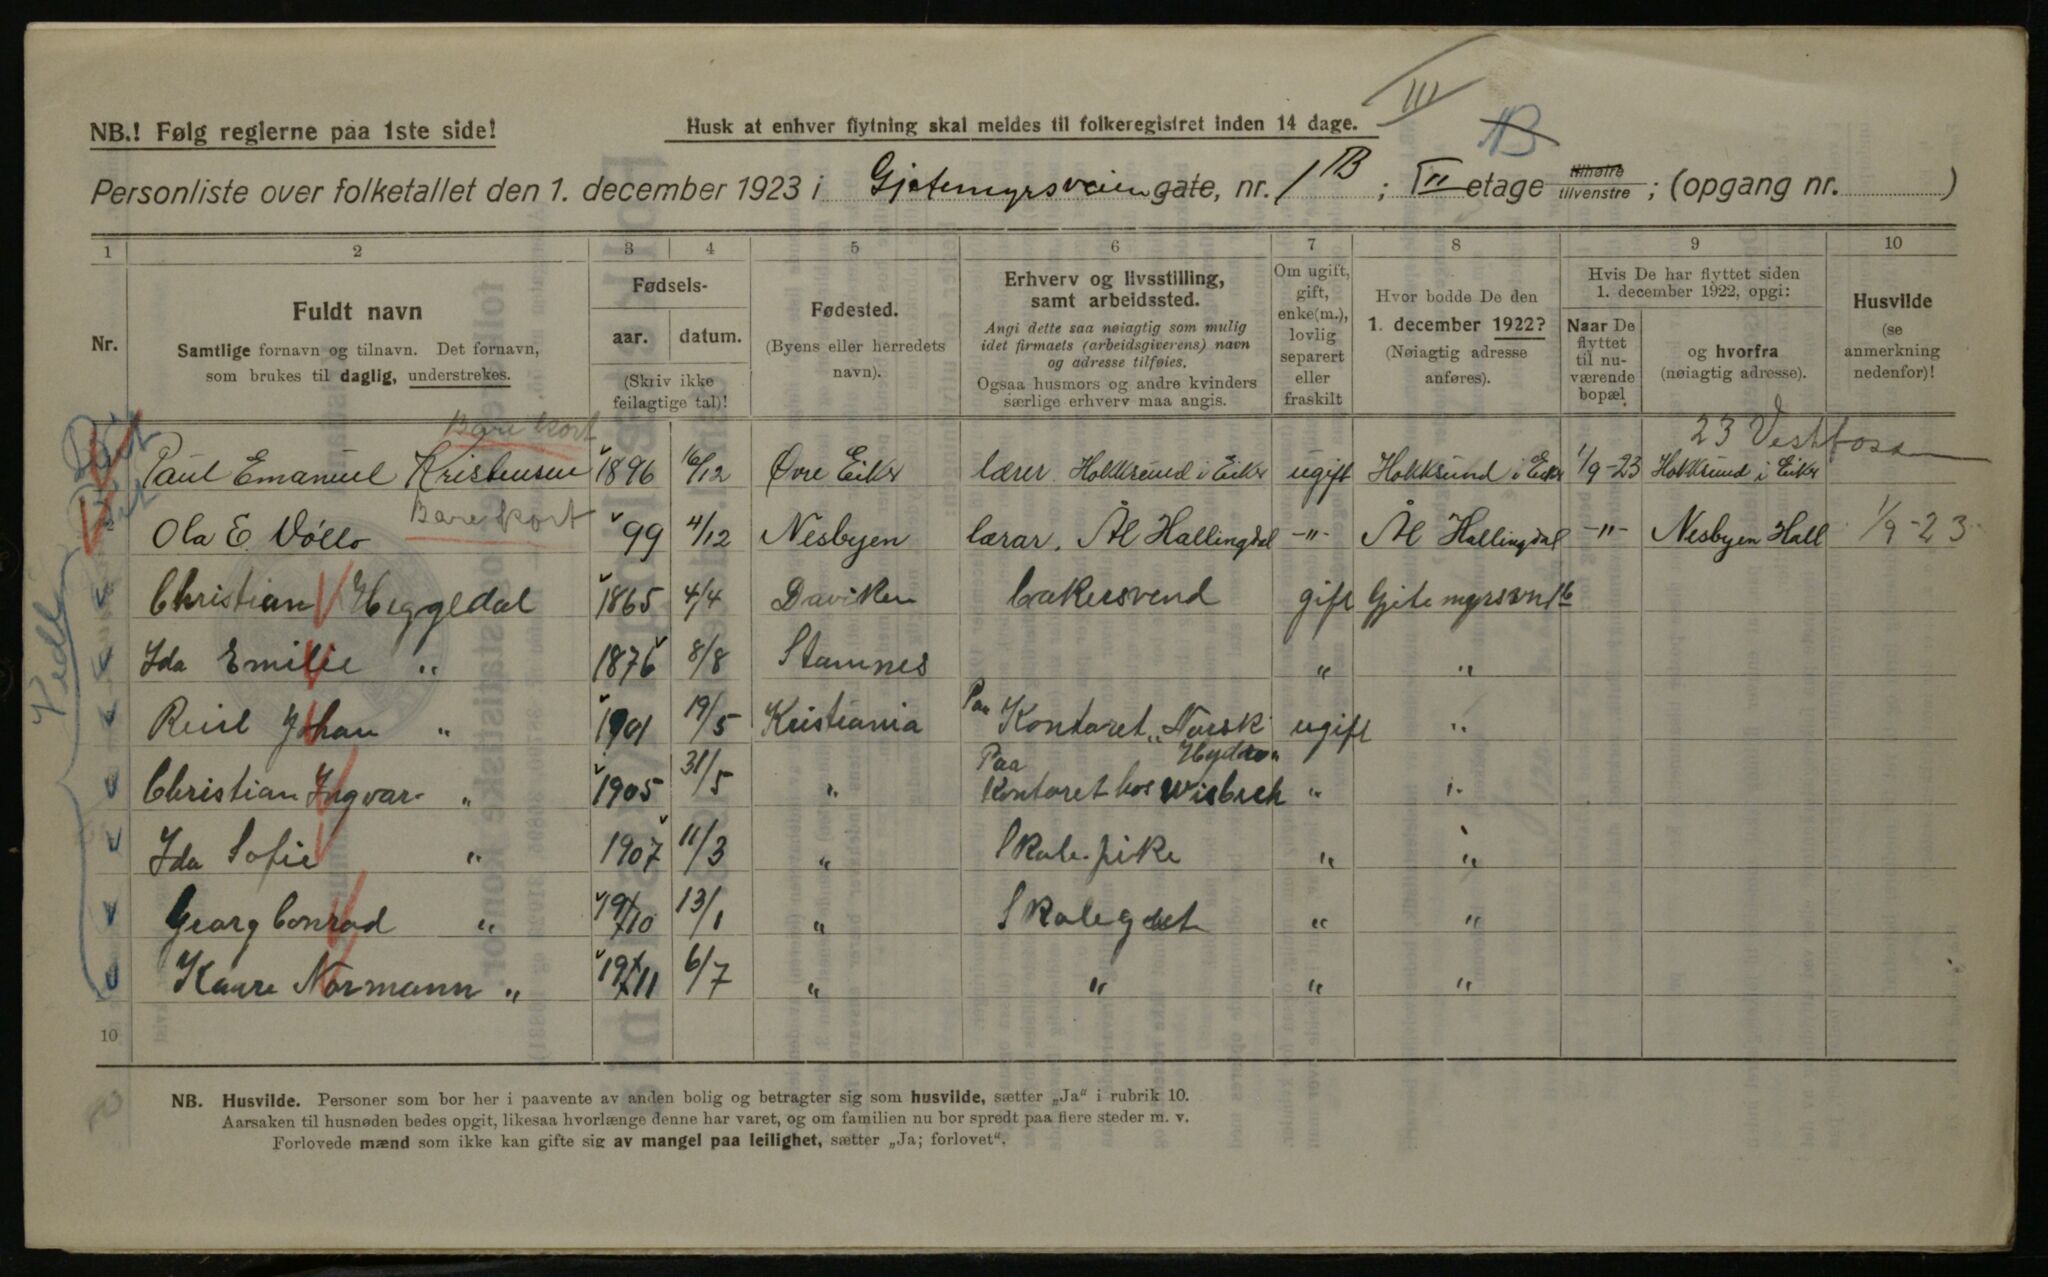 III
NB.! Følg reglerne paa 1ste side!
Husk at enhver flytning skal meldes til folkeregistret inden 14 dage.
1B
Personliste over folketallet den 1. december 1923 i Gjetemyrsveien gate, nr. 1B; II etage tilhøire tilvenstre; (opgang nr. )
1 2 3 4 5 6 7 8 9 10
Nr.
Fuldt navn
Samtlige fornavn og tilnavn. Det fornavn,
som brukes til daglig, understrekes.
Fødsels-
aar. datum.
(Skriv ikke
feilagtige tal)!
Fødested.
(Byens eller herredets
navn).
Erhverv og livsstilling,
samt arbeidssted.
Angi dette saa nøiagtig som mulig
idet firmaets (arbeidsgiverens) navn
og adresse tilføies.
Ogsaa husmors og andre kvinders
særlige erhverv maa angis.
Om ugift,
gift,
enke(m.),
lovlig
separert
eller
fraskilt
Hvor bodde De den
1. december 1922?
(Nøiagtig adresse
anføres).
Hvis De har flyttet siden
1. december 1922, opgi:
Naar De
flyttet
til nu-
værende
bopæl
og hvorfra
(nøiagtig adresse).
Husvilde
(se
anmerkning
nedenfor)!
Bare kort 23 Vestfossen
Paul Emanuel Kristensen 1896 16/12 Øvre Eiker lærer Hokksund i Eiker ugift Hokksund i Eiker 1/9-23 Hokksund i Eiker
Bare kort
2 Ola E. Vøllo 99 4/12 Nesbyen lærar, Ål Hallingdal -"- Ål Hallingdal -"- Nesbyen Hall 1/9-23
Christian Heggedal 1865 4/4 Daviken bakersvend gift Gjetemyrsvn 1b
Ida Emilie " 1876 8/8 Stamnes " "
Johan " 1901 19/5 Kristiania Paa Kontoret „Norsk Hydro“ ugift "
Christian Ingvar " 1905 31/5 " Paa Kontoret hos Wisbech " "
Ida Sofie " 1907 11/3 " Skolepike " "
Georg Conrad " 1910 13/1 " Skolegut " "
Kaare Normann " 1911 6/7 " " " "
10
NB. Husvilde. Personer som bor her i paavente av anden bolig og betragter sig som husvilde, sætter „Ja“ i rubrik 10.
Aarsaken til husnøden bedes opgit, likesaa hvorlænge denne har varet, og om familien nu bor spredt paa flere steder m. v.
Forlovede mænd som ikke kan gifte sig av mangel paa leilighet, sætter „Ja; forlovet“.